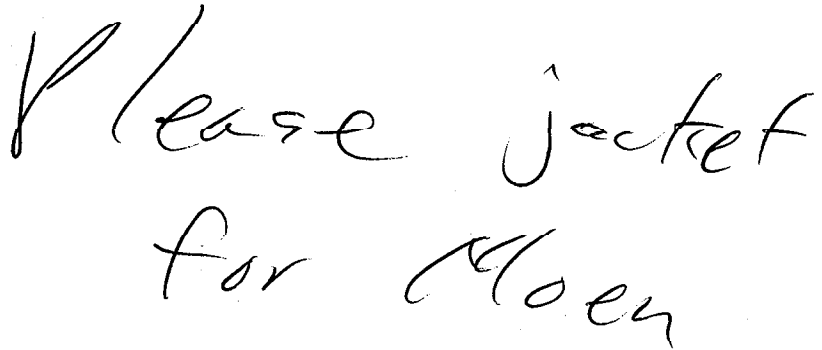 Please jacket
for Moen